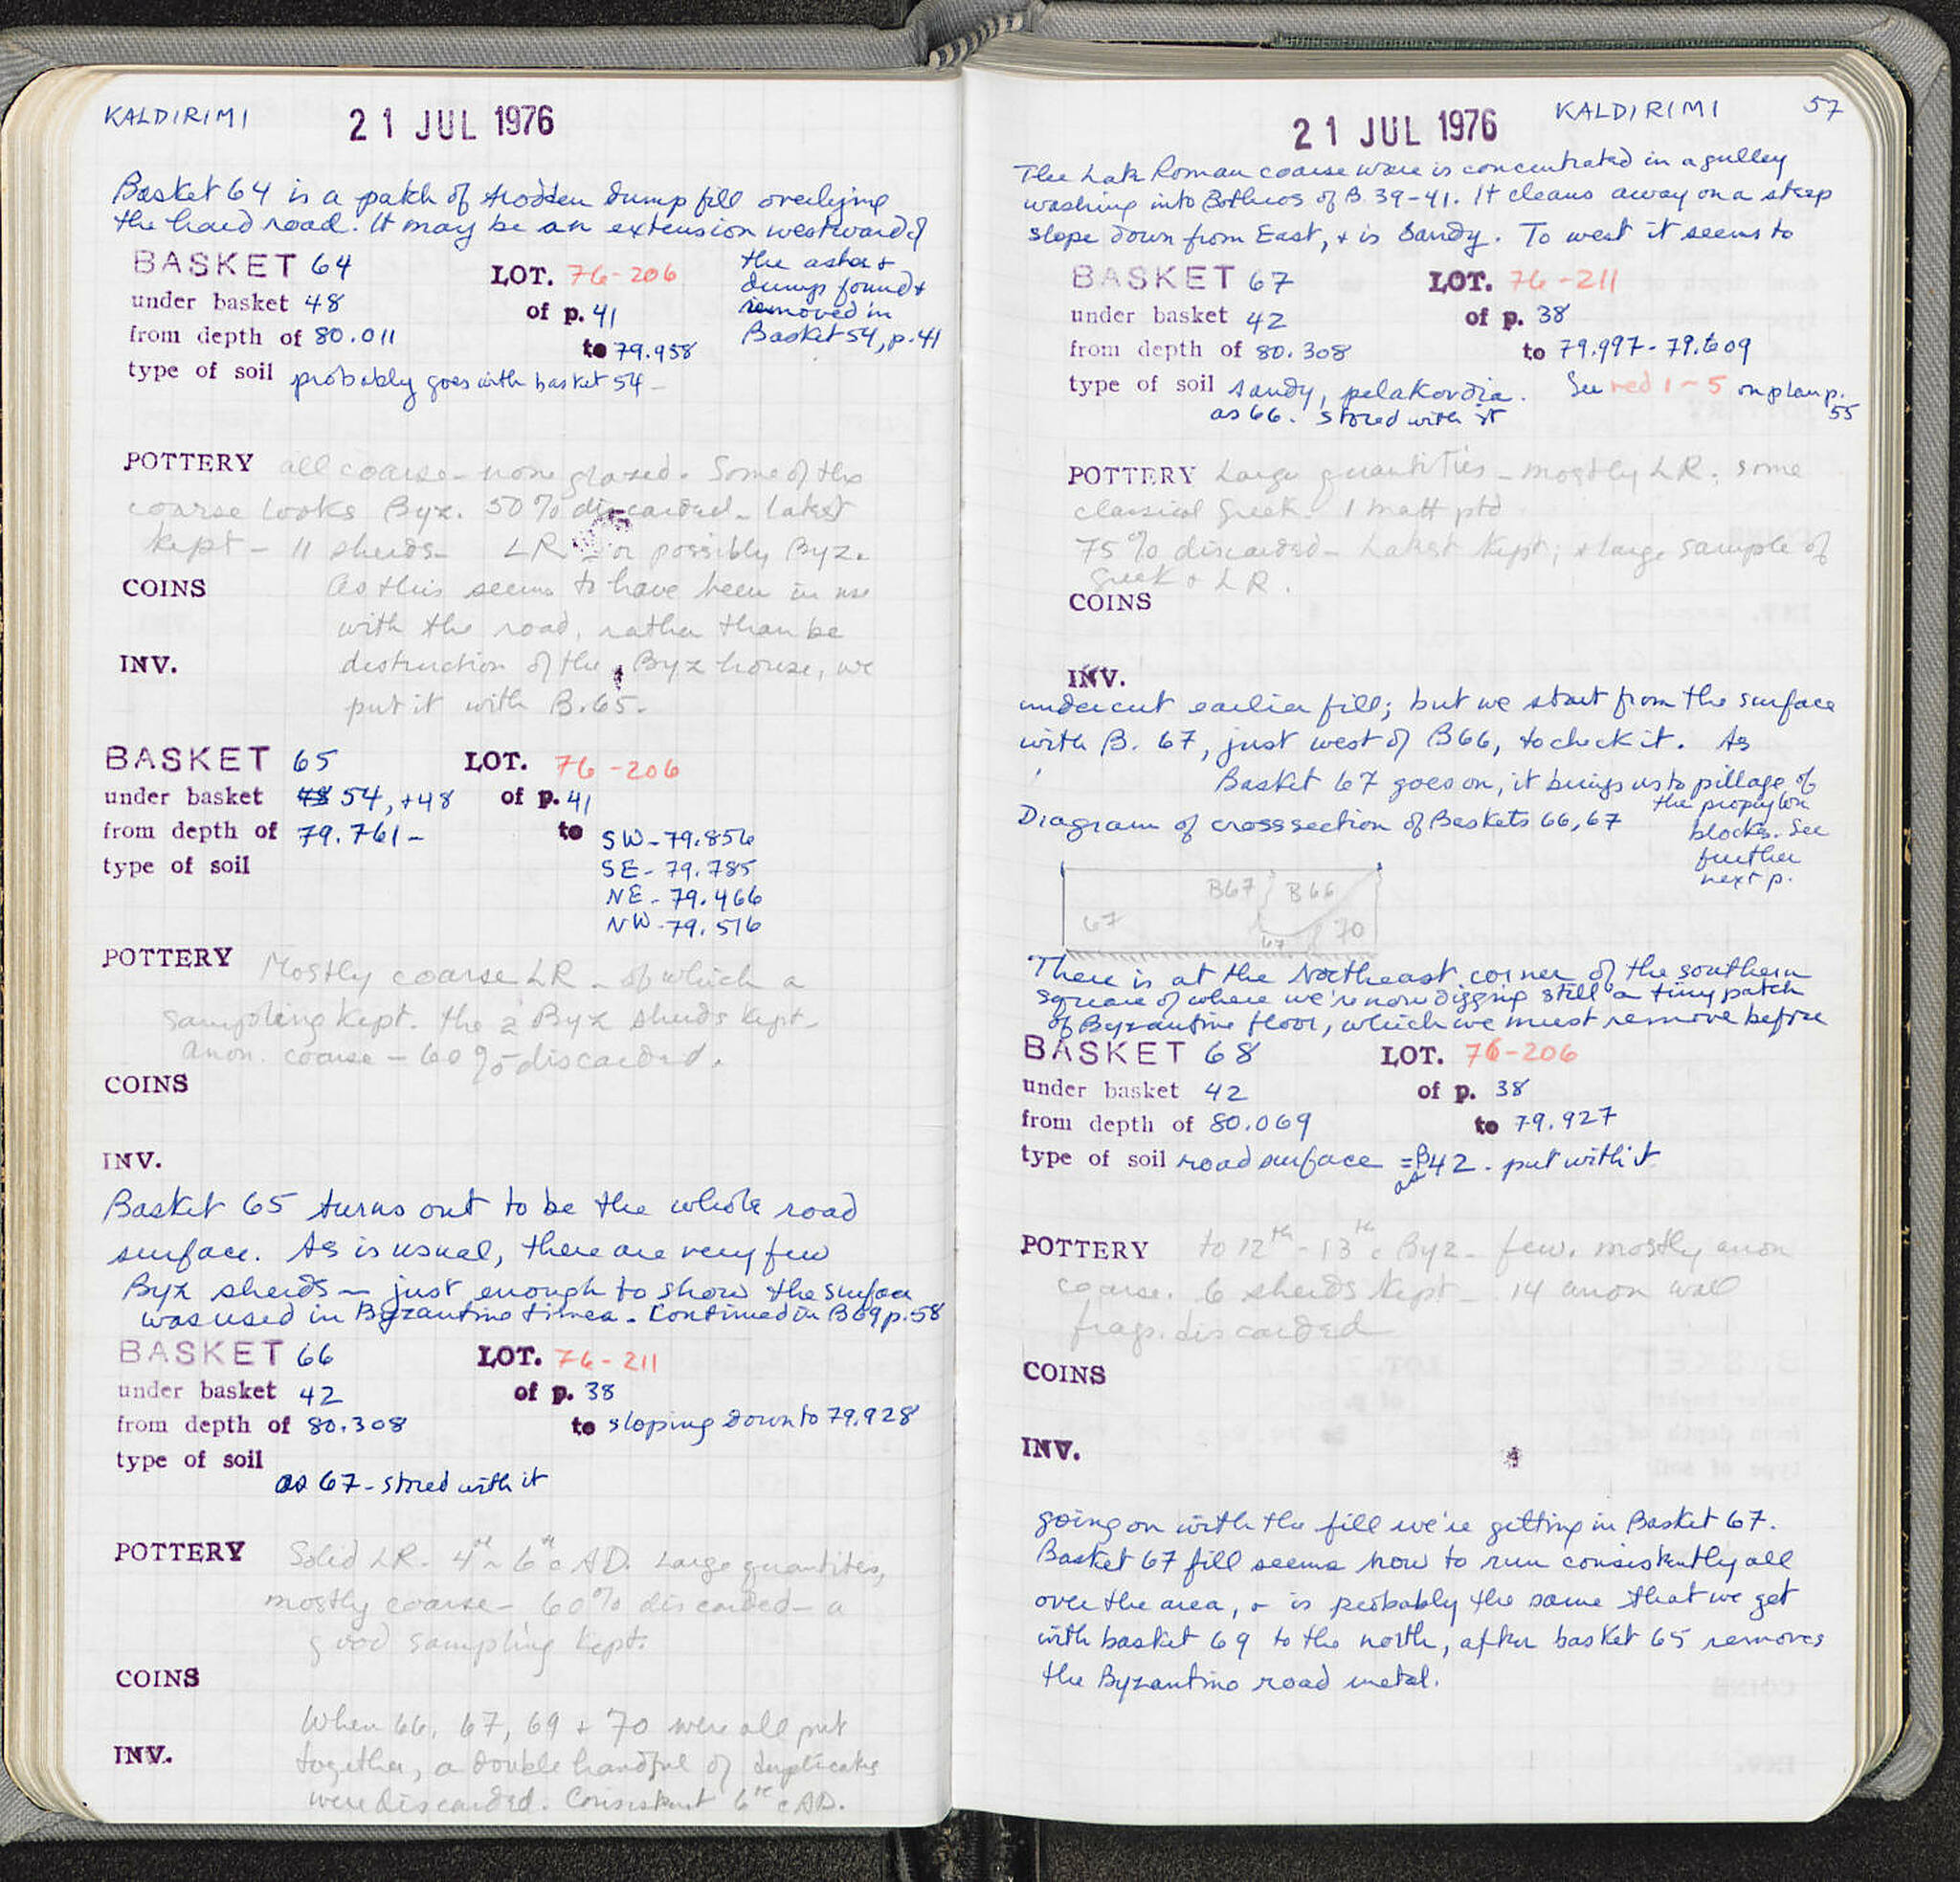 KALDIRIMI 21 JUL 1976
Basket 64 is a patch of trodden dump fill overlying
the hard road. It may be an extension westward of
the ashes +
dumps found +
removed in
Basket 54, p. 41
BASKET 64 LOT. 76-206
under basket 48 of p. 41
from depth of 80.011 to 79.958
type of soil probably goes with basket 54 -
POTTERY all coarse - none glazed. Some of the
coarse looks Byz. 50% discarded - latest
kept - 11 sherds - LR - or possibly Byz.
COINS As this seems to have been in use
with the road, rather than be
INV. destruction of the Byz house, we
put it with B.65.
BASKET 65 LOT. 76-206
under basket 48 54, +48 of p. 41
from depth of 79.761 - to SW - 79.856
type of soil SE - 79.785
NE - 79.466
NW - 79.516
POTTERY Mostly coarse LR - of which a
sampling kept. the 2 Byz sherds kept -
anon. coarse - 60% discarded.
COINS
INV.
Basket 65 turns out to be the whole road
surface. As is usual, there are very few
Byz sherds - just enough to show the surface
was used in Byzantine times - Continued in B69 p. 58
BASKET 66 LOT. 76-211
under basket 42 of p. 38
from depth of 80.308 to sloping down to 79.928
type of soil
as 67 - stored with it
POTTERY Solid LR - 4th - 6th c AD. Large quantities,
mostly coarse - 60% discarded - a
good sampling kept.
COINS
When 66, 67, 69 + 70 were all put
INV. together, a double handful of duplicates
were discarded. Consistent 6th c AD.
21 JUL 1976 KALDIRIMI 57
The Late Roman coarse ware is concentrated in a gulley
washing into Bothros of B. 39-41. It cleans away on a steep
slope down from East, + is sandy. To west it seems to
BASKET 67 LOT. 76-211
under basket 42 of p. 38
from depth of 80.308 to 79.997 - 79.609
type of soil sandy, pelakordia. See red 1-5 on plan p.
55
as 66. stored with it
POTTERY Large quantities - mostly LR; some
classical Greek. 1 matt ptd
75% discarded - Latest kept; + large sample of
Greek + LR.
COINS
INV.
undercut earlier fill; but we start from the surface
with B. 67, just west of B66, to check it. As
Basket 67 goes on, it brings us to pillage of
the propylon
blocks. See
further
next p.
Diagram of cross section of Baskets 66, 67
B67 B66
67 67 70
There is at the Northeast corner of the southern
square of where we're now digging still a tiny patch
of Byzantine floor, which we must remove before
BASKET 68 LOT. 76-206
under basket 42 of p. 38
from depth of 80.069 to 79.927
type of soil road surface = B42 - put with it
as
POTTERY to 12th - 13th c Byz - few. mostly anon
coarse. 6 sherds kept - 14 anon wall
frags. discarded
COINS
INV.
going on with the fill we're getting in Basket 67.
Basket 67 fill seems now to run consistently all
over the area, + is probably the same that we get
with basket 69 to the north, after basket 65 removes
the Byzantine road metal.